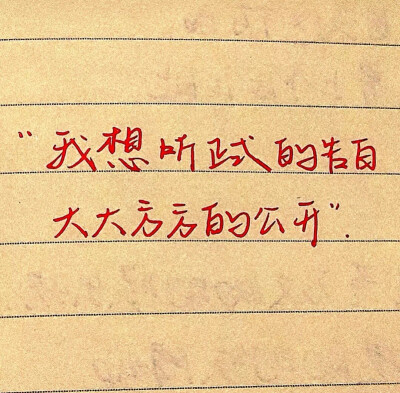 “我想听正式的告白
大大方方的公开”.